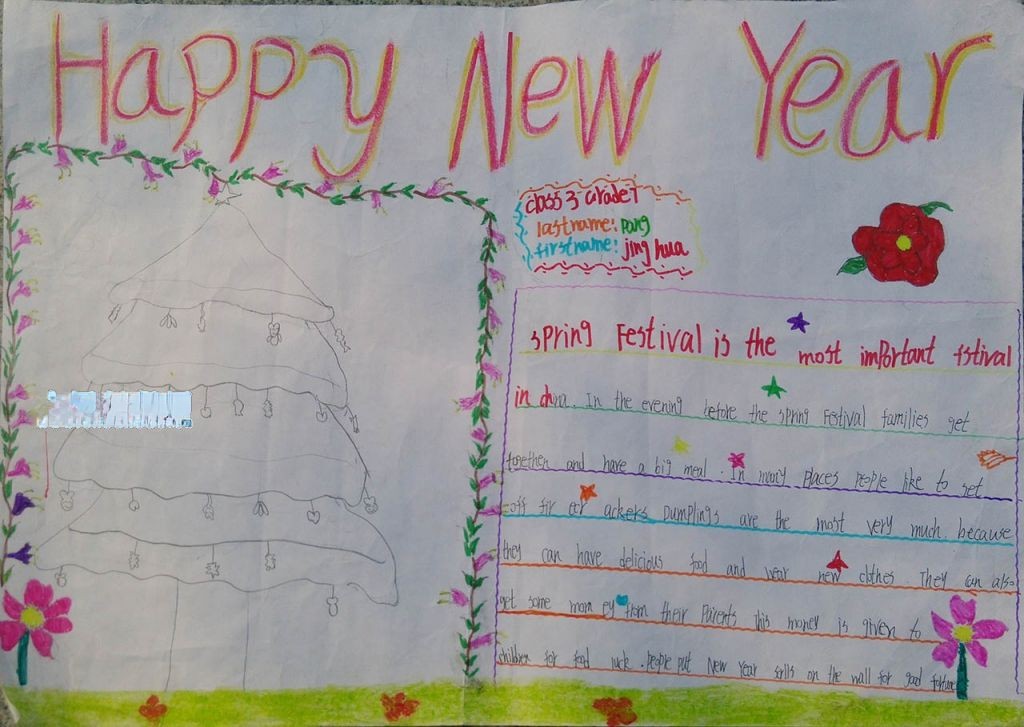 Happy New Year
class 3 Grade 7
lastname: Pang
firstname: jing hua
spring Festival is the most important fstival
in china. In the evening before the spring Festival families get
together and have a big meal. In many places people like to set
off fir ecr ackers Dumplings are the most very much. because
they can have delicious food and wear new clothes. They can also
get some mom ey from their parents this money is given to
children for food luck. people put New Year srlls on the wall for good fortune